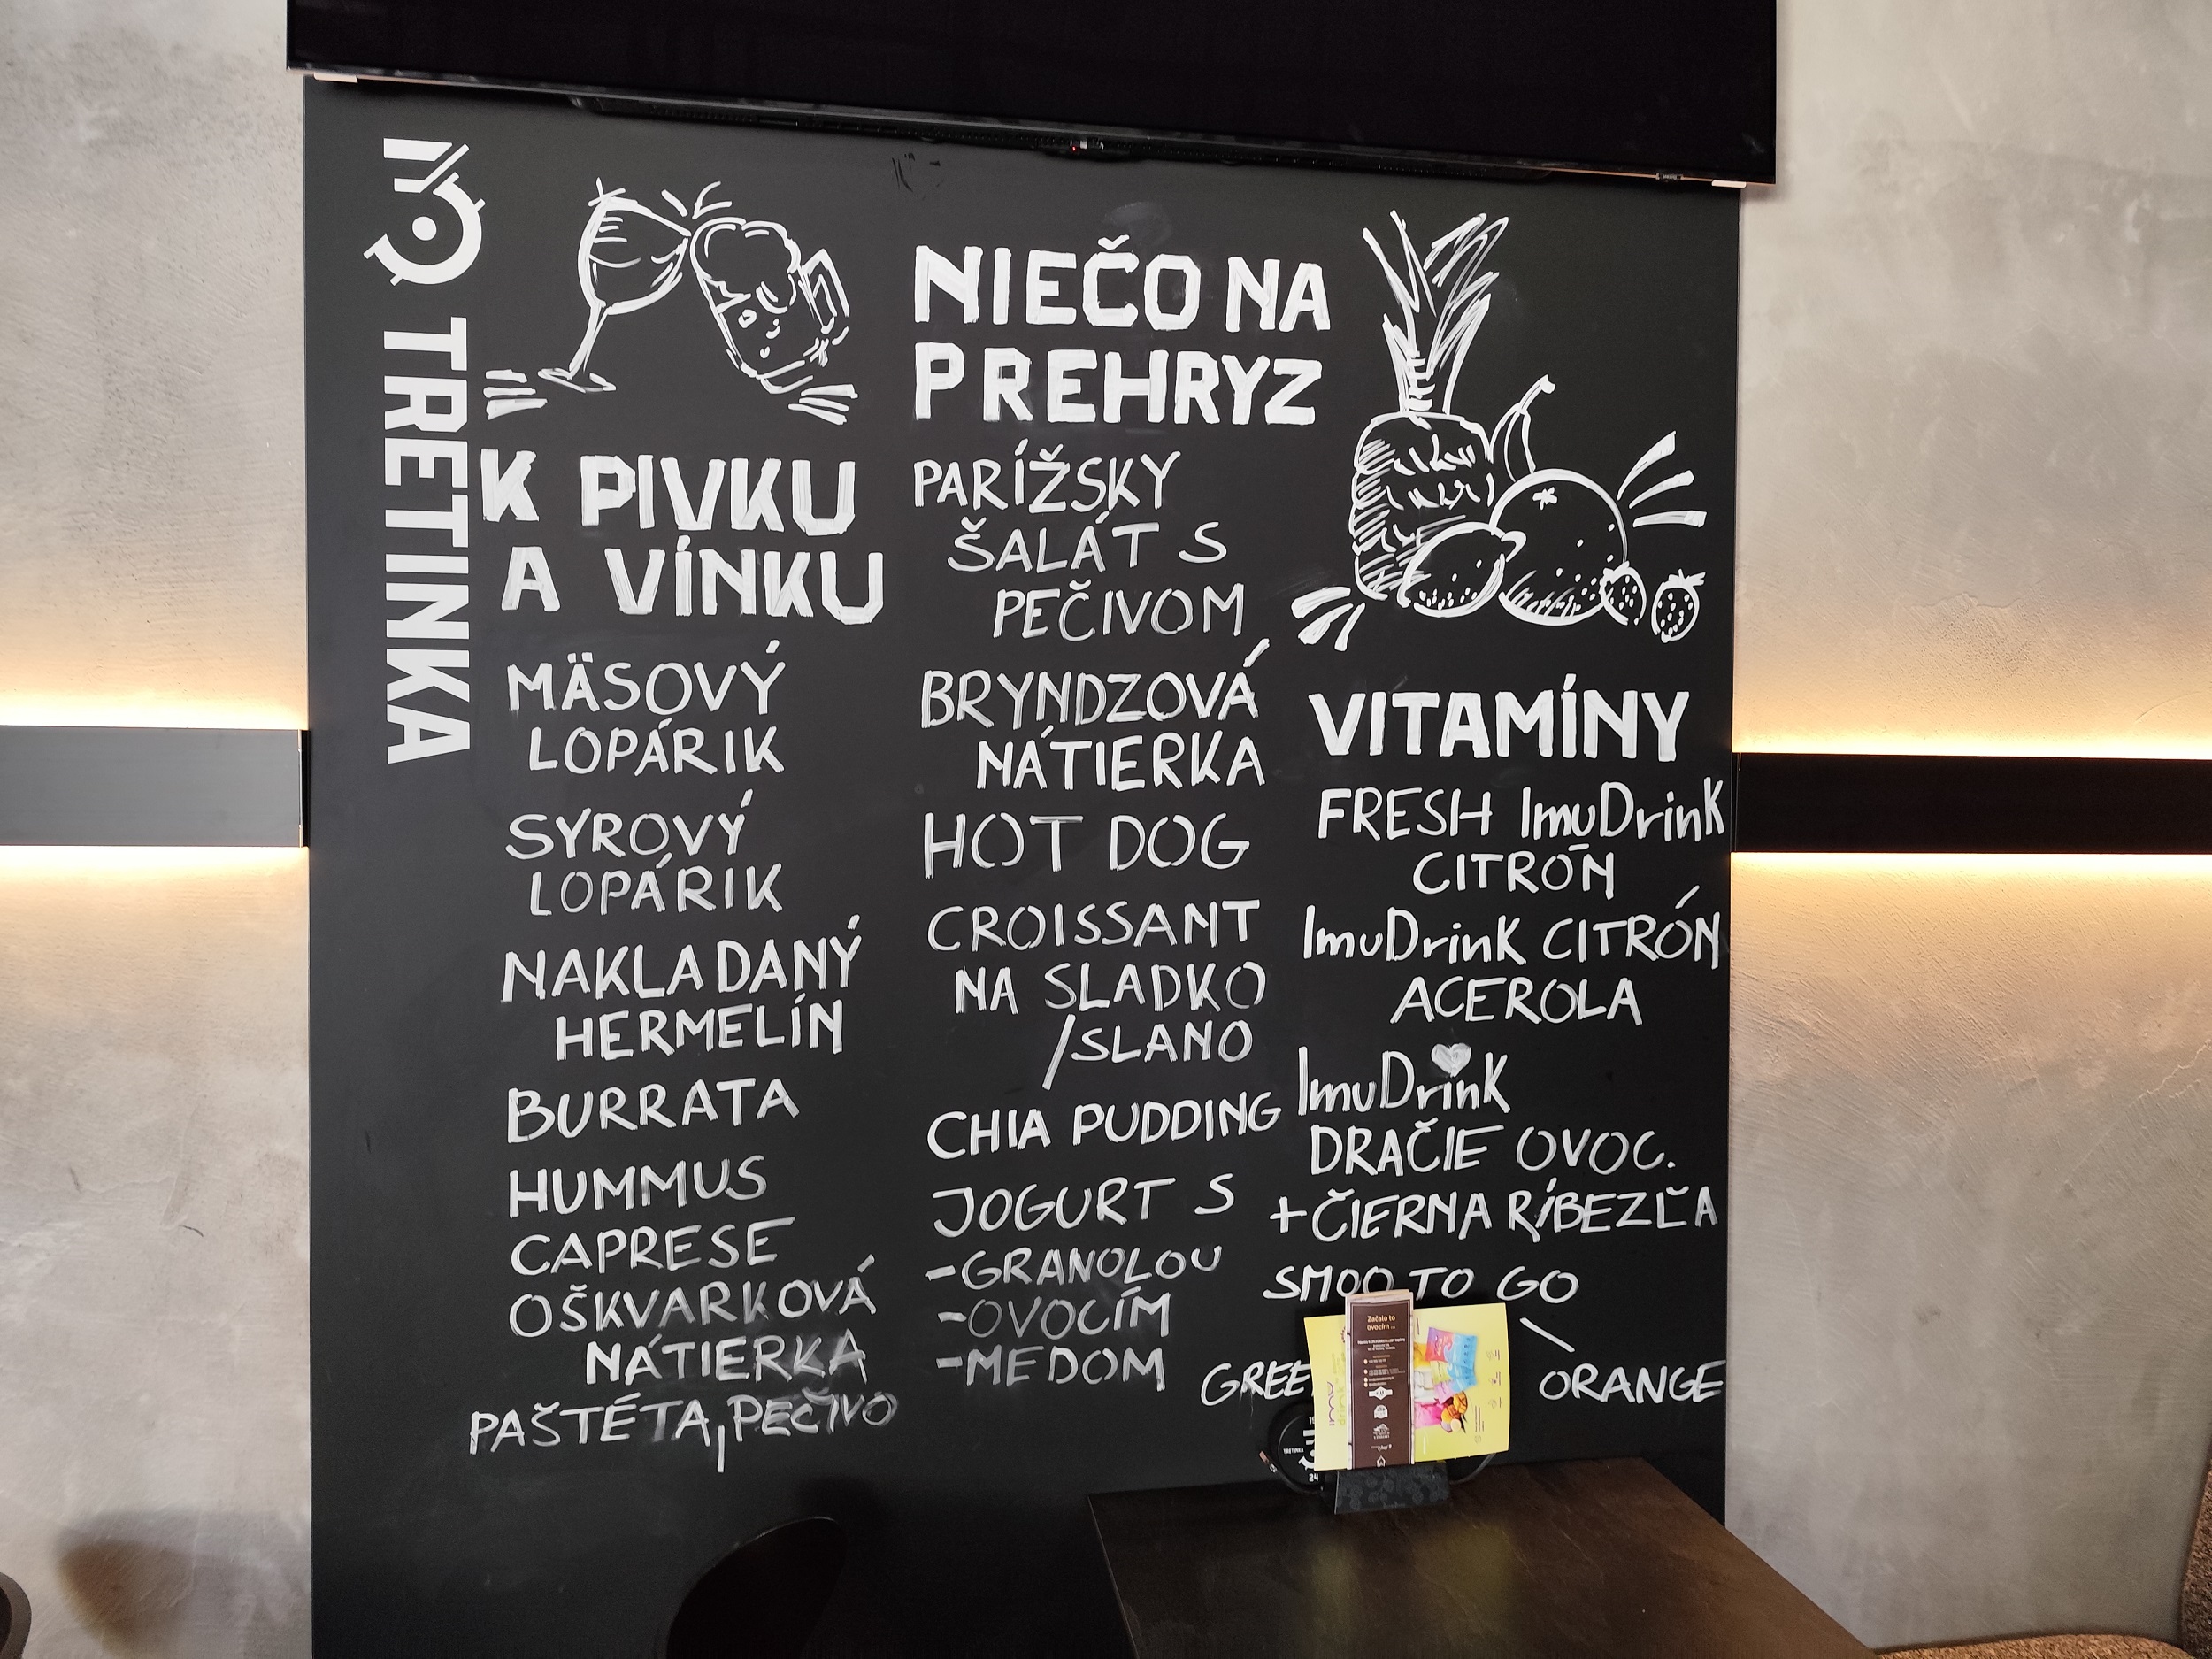 TRETINKA
K PIVKU
A VÍNKU
MÄSOVÝ
LOPÁRIK
SYROVÝ
LOPÁRIK
NAKLADANÝ
HERMELÍN
BURRATA
HUMMUS
CAPRESE
OŠKVARKOVÁ
NÁTIERKA
PAŠTÉTA, PEČIVO
NIEČO NA
PREHRYZ
PARÍŽSKY
ŠALÁT S
PEČIVOM
BRYNDZOVÁ
NÁTIERKA
HOT DOG
CROISSANT
NA SLADKO
/SLANO
CHIA PUDDING
JOGURT S
-GRANOLOU
-OVOCÍM
-MEDOM
VITAMÍNY
FRESH ImuDrink
CITRÓN
ImuDrink CITRÓN
ACEROLA
ImuDrink
DRAČIE OVOC.
+ČIERNA RÍBEZĽA
SMOO TO GO
ORANGE
Začalo to
ovocím...
TRETINKA
24